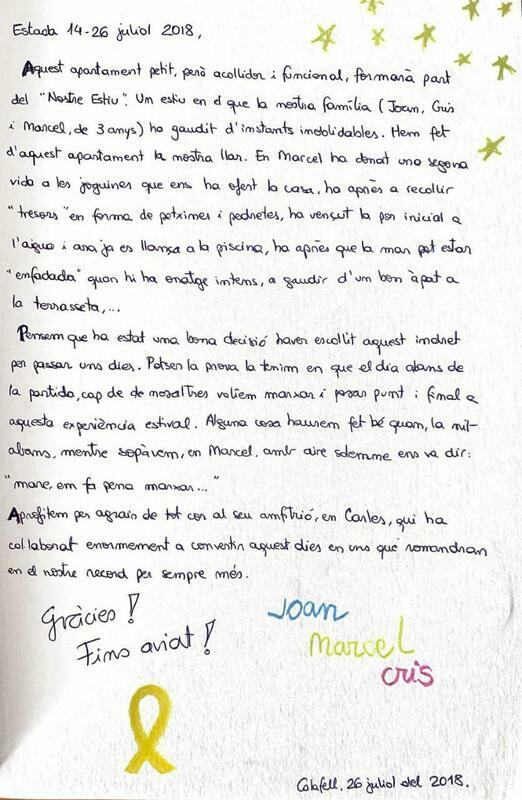 Estada 14-26 juliol 2018,
Aquest apartament petit, però acollidor i funcional, formarà part
del "Nostre Estiu". Un estiu en el que la nostra família (Joan, Cris
i Marcel, de 3 anys) ha gaudit d'instants inoblidables. Hem fet
d'aquest apartament la nostra llar. En Marcel ha donat una segona
vida a les joguines que ens ha ofert la casa, ha après a recollir
"tresors" en forma de petxines i pedretes, ha vençut la por inicial a
l'aigua i ara ja es llança a la piscina, ha après que la mar pot estar
"enfadada" quan hi ha onatge intens, a gaudir d'un bon àpat a
la terrasseta,...
Pensem que ha estat una bona decisió haver escollit aquest indret
per passar uns dies. Potser la prova la tenim en que el dia abans de
la partida, cap de de nosaltres volíem marxar i posar punt i final a
aquesta experiència estival. Alguna cosa haurem fet bé quan, la nit
abans, mentre sopàvem, en Marcel, amb aire solemne ens va dir:
"mare, em fa pena marxar..."
Aprofitem per agrair de tot cor al seu amfitrió, en Carles, qui ha
col·laborat enormement a convertir aquest dies en uns que romandran
en el nostre record per sempre més.
Gràcies!
Fins aviat!
Joan
Marcel
Cris
Calafell, 26 juliol del 2018.